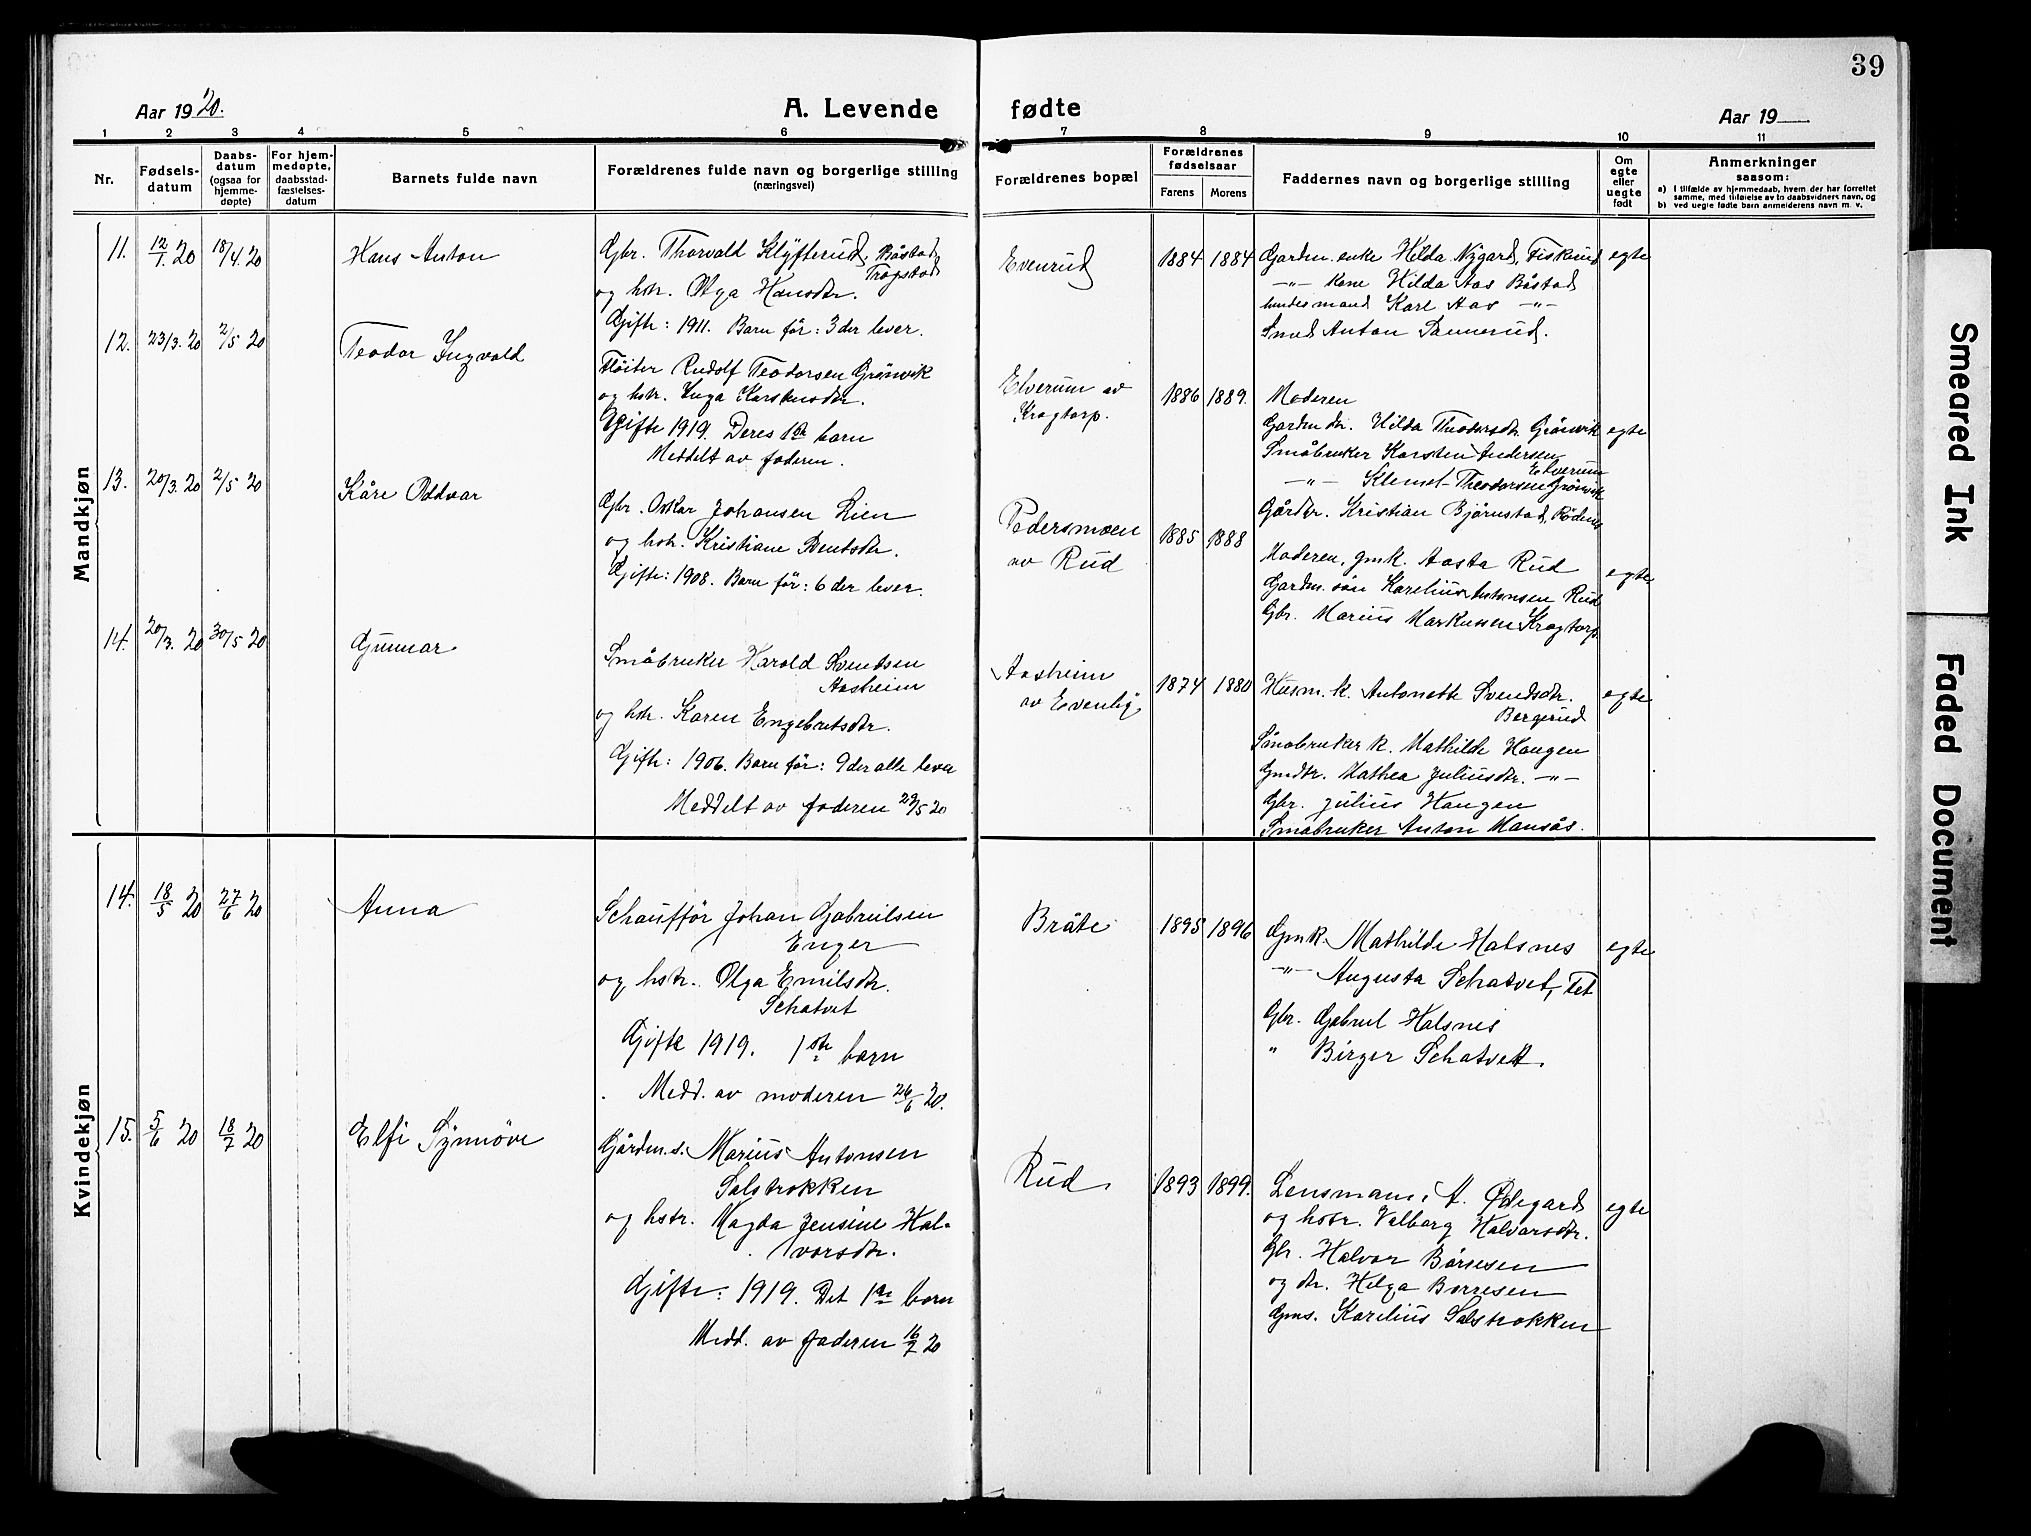 39
Aar 1920.
A. Levende fødte
Aar 19
1 2 3 4 5 6 7 8 9 10 11
Nr.
Fødsels-
datum
Daabs-
datum
(ogsaa for
hjemme-
døpte)
For hjem-
medøpte,
daabsstad-
fæstelses-
datum
Barnets fulde navn
Forældrenes fulde navn og borgerlige stilling
(næringsvei)
Forældrenes bopæl
Forældrenes
fødselsaar
Farens Morens
Faddernes navn og borgerlige stilling
Om
egte
eller
uegte
født
Anmerkninger
saasom:
a) I tilfælde av hjemmedaab, hvem der har forrettet
samme, med tilføielse av to daabsvidners navn, og
b) ved uegte fødte barn anmelderens navn m. v.
Mandkjøn
11. 12/1. 20 18/4. 20
Hans Anton
Gbr. Thorvald Klyfterud, Båstad,
Trøgstad
og hstr. Olga Hansdtr.
Gifte: 1911. Barn før: 3 der lever.
Evenrud
1884 1884
Gardm. enke Hilda Nygard, Fiskerud
-"- kone Hilda Aas Båstad
Karl Aas -"-
Smed Anton Sannerud.
egte
12. 23/3. 20 2/5 20
Teodor Ingvald
Fløiter Rudolf Teodorsen Grønvik
og hstr. Inga Karstensdtr.
Gifte 1919. Deres 1ste barn
Meddelt av faderen.
Elverum av
Kragtorp.
1886 1889.
Moderen
Gardm. dtr. Hilda Theodorsdtr. Grønvik
Småbruker Karsten Andersen
Elverum
-"- Klemet Theodorsen Grønvik
egte
13. 20/3. 20 2/5 20
Kåre Oddvar
Gbr. Oskar Johansen Lien
og hstr. Kristiane Berntsdtr.
Gifte: 1908. Barn før: 6 der lever.
Pedersmoen
av Rud
1885 1888
Gårdbr. Kristian Bjørnstad, Rødenes
Moderen, gmk. Aasta Rud
Gardm. søn Karelius Antonsen Rud
Gbr. Marius Markussen Kragtorp.
egte
14. 20/3. 20 30/5 20
Gunnar
Småbruker Harald Svendsen
Aasheim
og hstr. Karen Engebretsdtr.
Gifte: 1906. Barn før: 9 der alle lever
Meddelt av faderen 29/5 20
Aasheim
av Evenby
1874 1880
Husm. k. Antonette Svendsdtr.
Bergerud
Småbruker k. Mathilde Haugen
Gmdtr. Mathea Juliusdtr. -"-
Gbr. Julius Haugen
Småbruker Anton Hansås.
egte
Kvindekjøn
14. 18/5 20 27/6 20
Anna
Schauffør Johan Gabrielsen
Enger
og hstr. Olga Emilsdtr.
Schatvet
Gifte 1919. 1ste barn
Medd. av moderen 26/6 20.
Bråte
1895 1896
Gmk. Mathilde Halsnes
-"- Augusta Schatvet, Fet
Gbr. Gabriel Halsnes
" Birger Schatvet.
egte
15. 5/6 20 18/7 20
Elfi Synnøve
Gårdm. s. Marius Antonsen
Salstrokken
og hstr. Magda Jensine Hal-
vorsdtr.
Gifte: 1919. Det 1ste barn
Medd. av faderen 16/7 20
Rud
1893 1899.
Lensmann i A. Ødegard
og hstr. Valborg Halvorsdtr.
Gbr. Halvor Børresen
og dtr. Helga Børresen
Gms. Karelius Salstrokken
egte
Smeared Ink
Faded Document